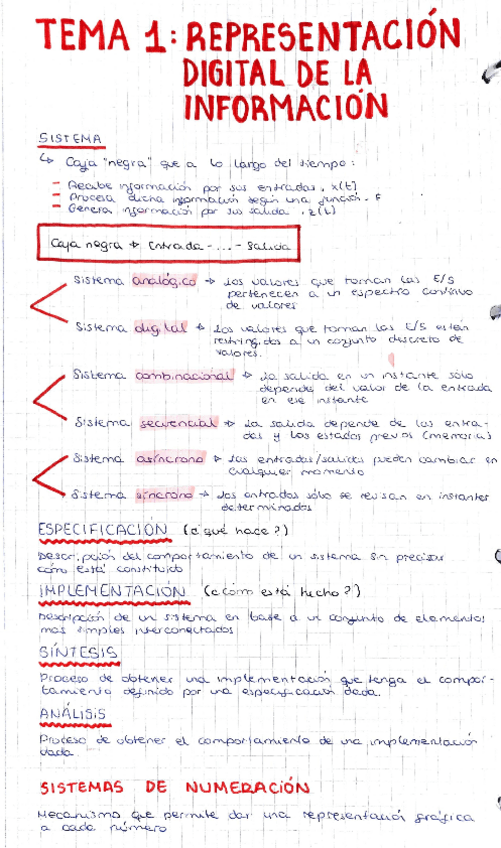 TEMA 1: REPRESENTACIÓN
DIGITAL DE LA
INFORMACIÓN
SISTEMA
↳ Caja "negra" que a lo largo del tiempo:
- Recibe información por sus entradas. x(t)
- Procesa dicha información según una función. F
- Genera información por su salida. z(t)
Caja negra → Entrada - ... - Salida
Sistema analógico → Los valores que toman las E/S
pertenecen a un espectro continuo
de valores
Sistema digital → Los valores que toman las E/S están
restringidos a un conjunto discreto de
valores.
Sistema combinacional → La salida en un instante sólo
depende del valor de la entrada
en ese instante
Sistema secuencial → La salida depende de las entra-
das y los estados previos (memoria)
Sistema asíncrono → Las entradas/salidas pueden cambiar en
cualquier momento
Sistema síncrono → Las entradas sólo se revisan en instantes
determinados
ESPECIFICACIÓN (¿qué hace?)
Descripción del comportamiento de un sistema sin precisar
cómo está constituido
IMPLEMENTACIÓN (¿cómo está hecho?)
Descripción de un sistema en base a un conjunto de elementos
más simples interconectados
SÍNTESIS
Proceso de obtener una implementación que tenga el compor-
tamiento definido por una especificación dada.
ANÁLISIS
Proceso de obtener el comportamiento de una implementación
dada.
SISTEMAS DE NUMERACIÓN
Mecanismo que permite dar una representación gráfica
a cada número